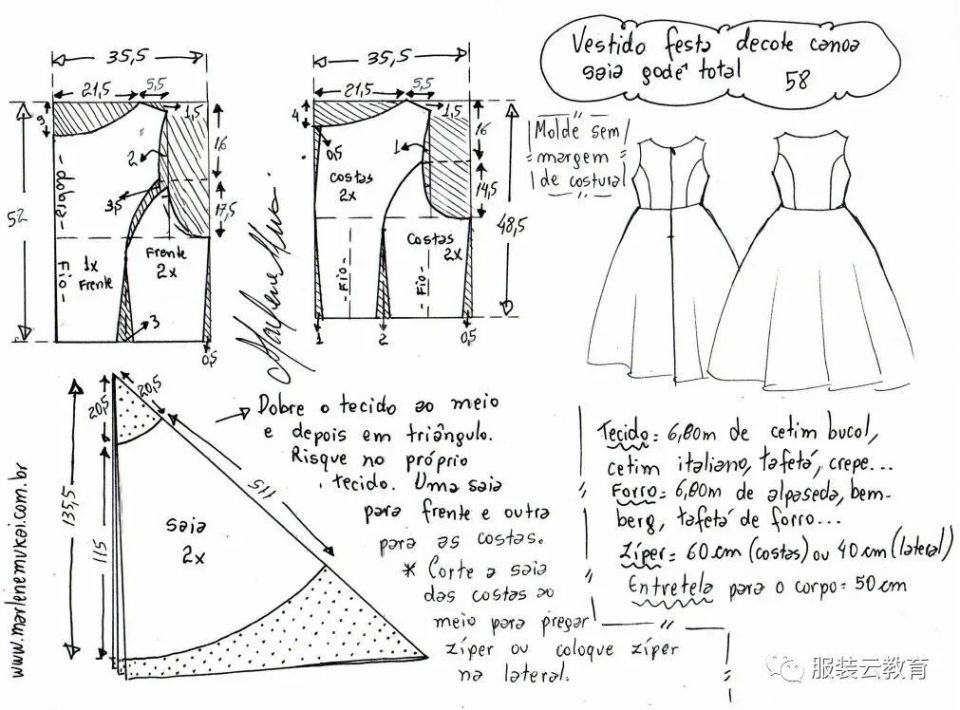 Vestido festa decote canoa
saia godê total 58
35,5
21,5
5,5
1,5
9
16
2
3,5
17,5
52
dobra
Fio
1x
Frente
Frente
2x
3
0,5
35,5
21,5
5,5
1,5
4
0,5
16
1
costas
2x
14,5
48,5
Costas
2x
Fio
Fio
1
2
0,5
Molde sem
margem
de costura
Marlene Mukai
20,5
20,5
115
135,5
115
saia
2x
www.marlenemukai.com.br
Dobre o tecido ao meio
e depois em triângulo.
Risque no próprio
tecido. Uma saia
para frente e outra
para as costas.
* Corte a saia
das costas ao
meio para pregar
zíper ou coloque zíper
na lateral.
Tecido = 6,80m de cetim bucol,
cetim italiano, tafetá, crepe...
Forro = 6,80m de alpaseda, bem-
berg, tafetá de forro...
Zíper = 60 cm (costas) ou 40 cm (lateral)
Entretela para o corpo = 50 cm
服装云教育